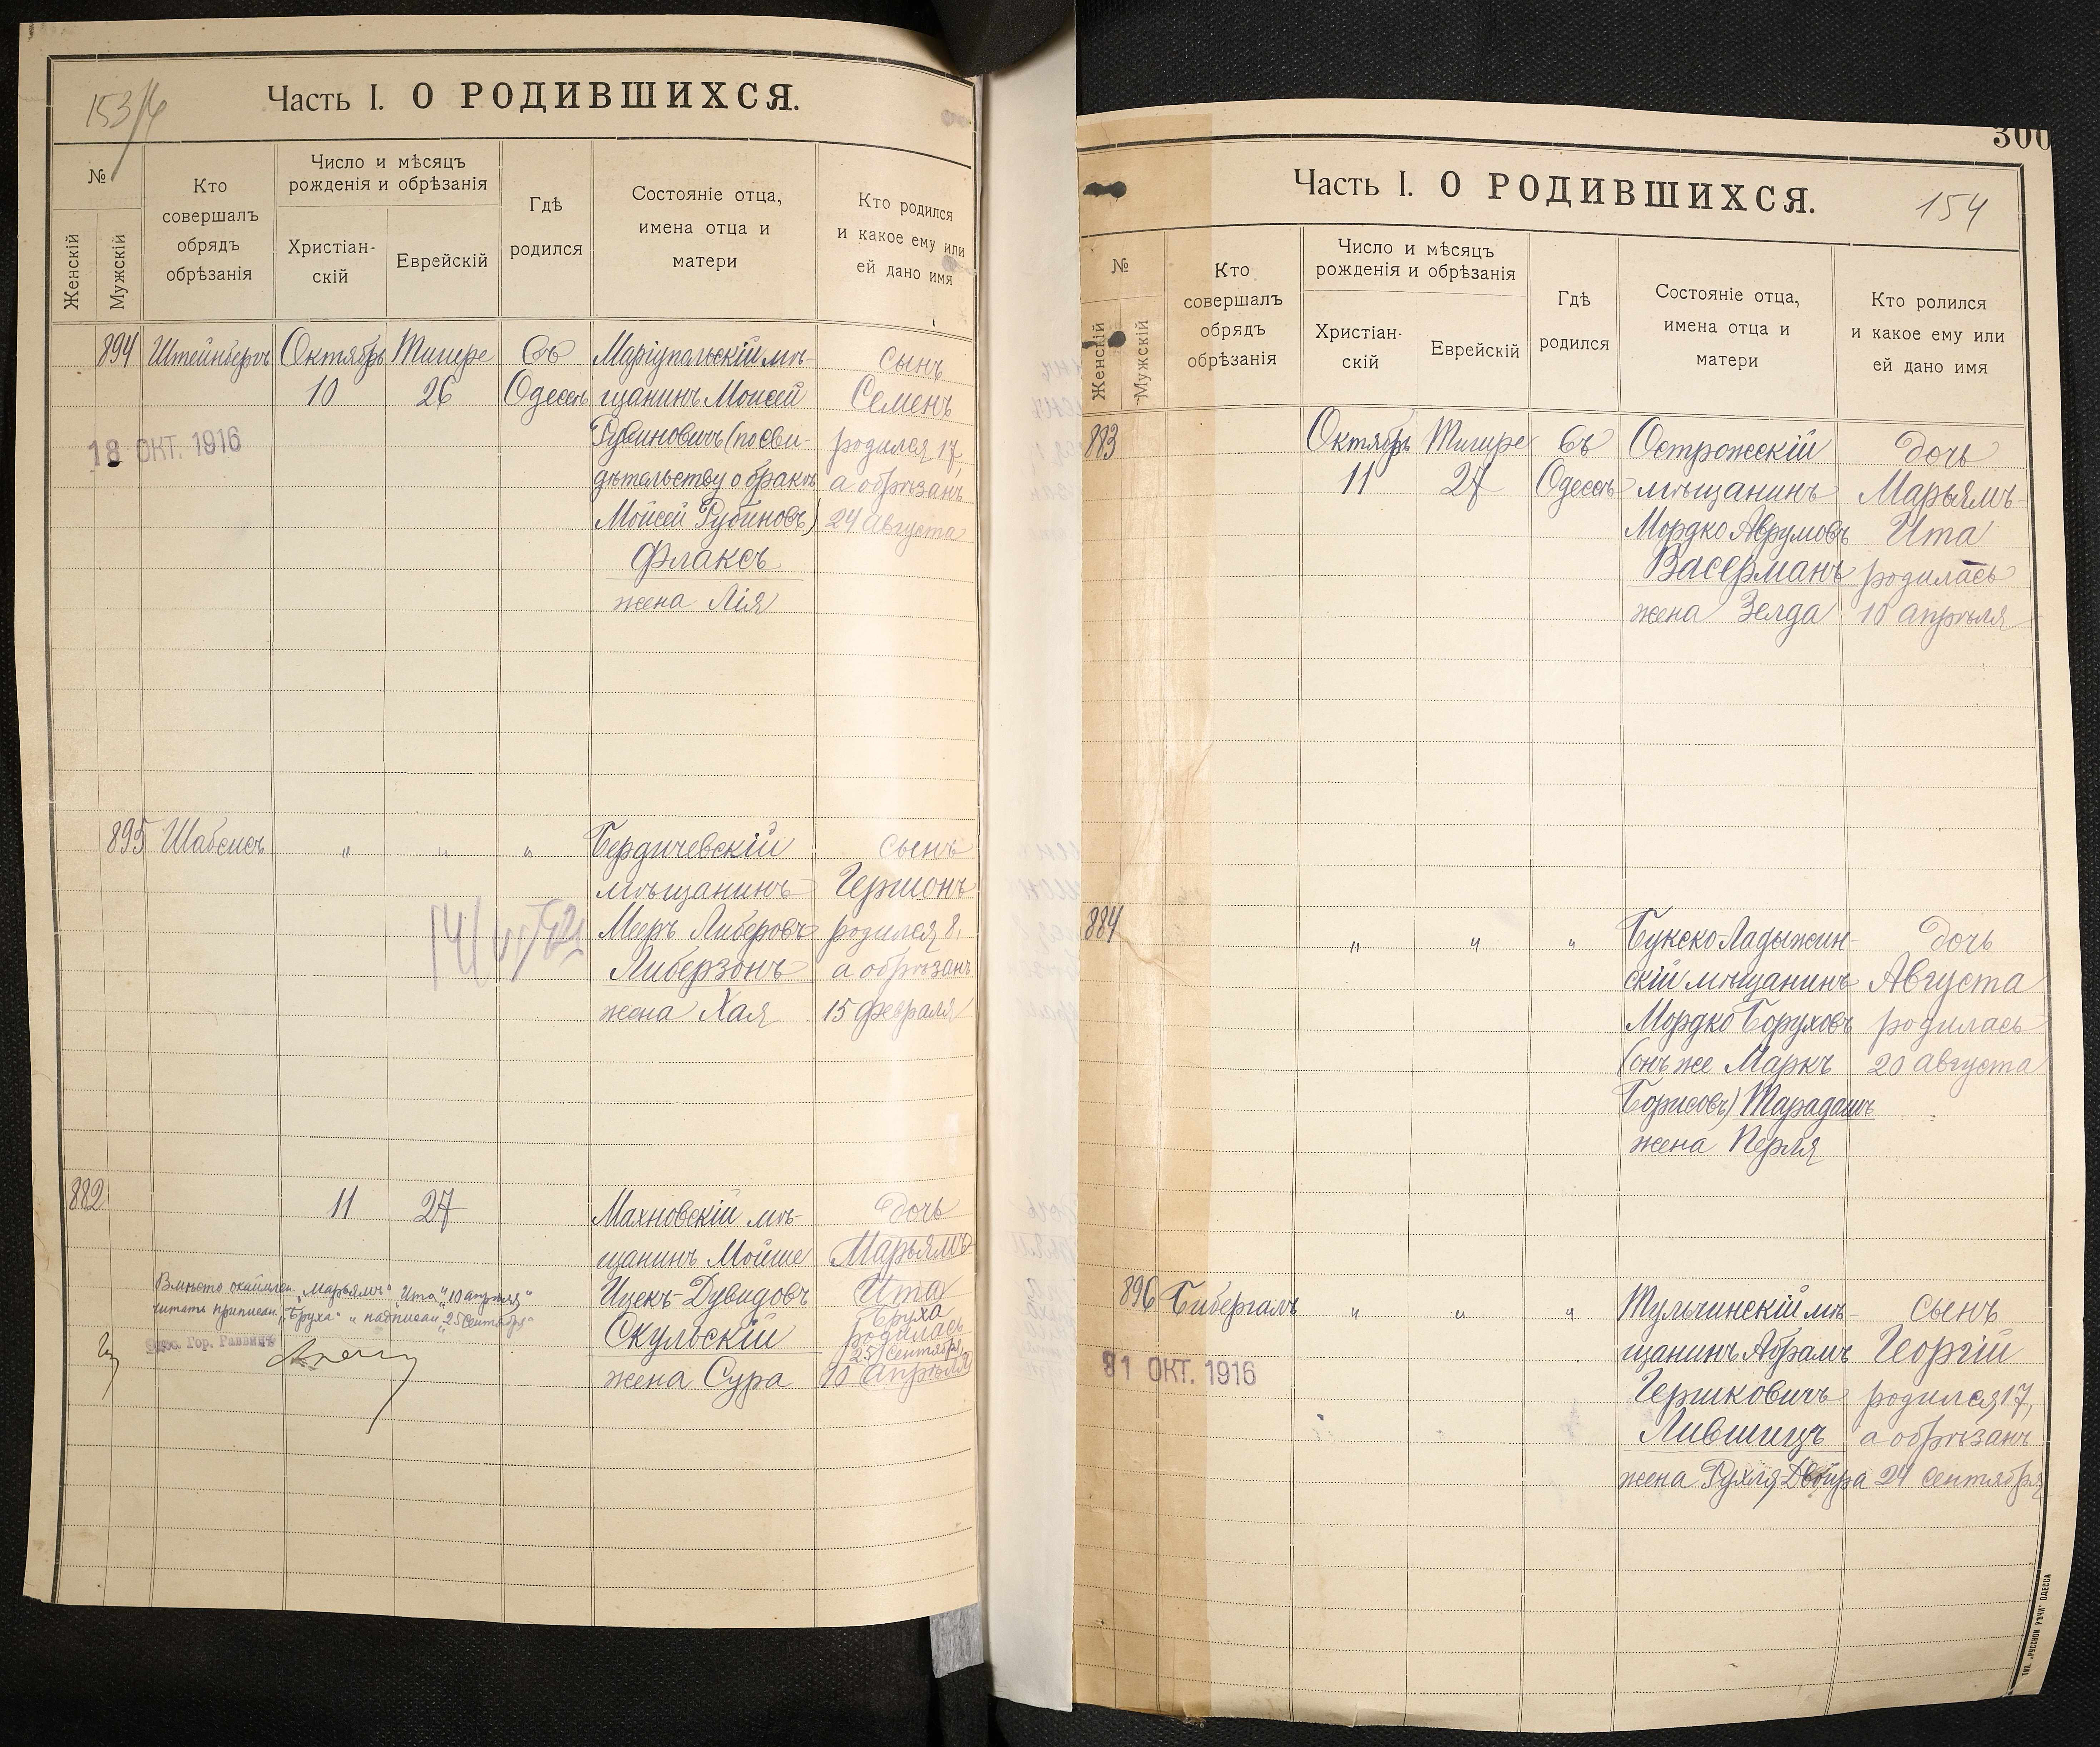 153/4
Часть I. О РОДИВШИХСЯ.
№
Женскій
Мужскій
Кто
совершалъ
обрядъ
обрѣзанія
Число и мѣсяцъ
рожденія и обрѣзанія
Христіан-
скій
Еврейскій
Гдѣ
родился
Состояніе отца,
имена отца и
матери
Кто родился
и какое ему или
ей дано имя
894 Штейнбергъ Октябрь Тишре Въ Маріупольскій мѣ- сынъ
10 26 Одессѣ щанинъ Моисей Семенъ
18 ОКТ. 1916
Рувиновичъ (по сви- родился 17,
дѣтельству о бракѣ а обрѣзанъ
Мойсей Рубиновъ) 24 августа
Флаксъ
жена Лія
895 Шабсисъ " " " Бердичевскій сынъ
мѣщанинъ Гершонъ
Мееръ Либеровъ родился 8,
Либерзонъ а обрѣзанъ
жена Хая 15 февраля
882 11 27 Махновскій мѣ- дочь
щанинъ Мойше Марьямъ
Ицекъ-Дувидовъ Ита
Бруха
Скульскій родилась
25 сентября
жена Сура 10 апрѣля
Вмѣсто "Марьямъ" "Ита" "10 апрѣля"
читать "Бруха" и "25 сентября"
Гор. Раввинъ
300
Часть I. О РОДИВШИХСЯ.
154
№
Женскій
Мужскій
Кто
совершалъ
обрядъ
обрѣзанія
Число и мѣсяцъ
рожденія и обрѣзанія
Христіан-
скій
Еврейскій
Гдѣ
родился
Состояніе отца,
имена отца и
матери
Кто ролился
и какое ему или
ей дано имя
883 Октябрь Тишре Въ Острожскій дочь
11 27 Одессѣ мѣщанинъ Марьямъ-
Мордко Аврумовъ Ита
Васерманъ родилась
жена Зелда 10 апрѣля
884 " " " Букско-Ладыжин- дочь
скій мѣщанинъ Августа
Мордко Боруховъ родилась
(онъ же Маркъ 20 августа
Борисовъ) Тарадашъ
жена Перля
896 Бибергалъ " " " Тульчинскій мѣ- сынъ
щанинъ Абрамъ Георгій
31 ОКТ. 1916
Гершковичъ родился 17,
Лившицъ а обрѣзанъ
жена Рухля-Двойра 24 сентября
ТИП. „РУССКОЙ РѢЧИ" ОДЕССА